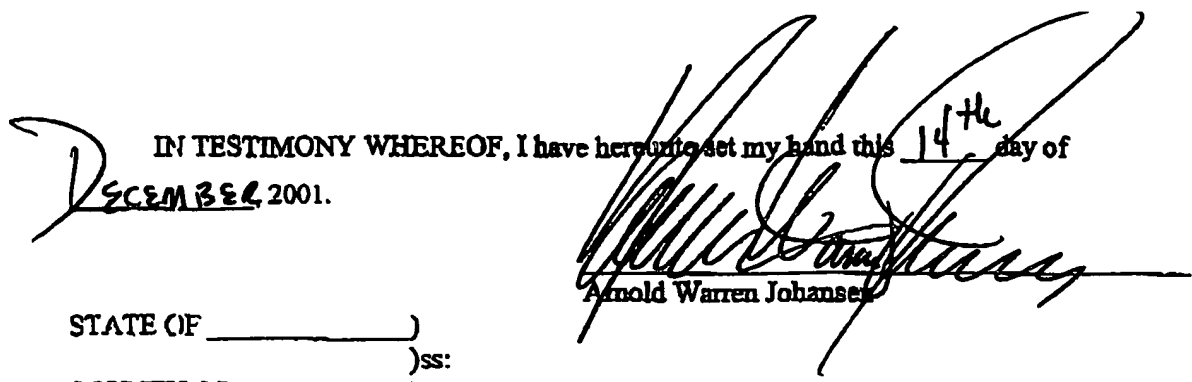 IN TESTIMONY WHEREOF, I have hereunto set my hand this 14th day of
DECEMBER 2001.
Arnold Warren Johansen
STATE OF ____________ )
)ss: